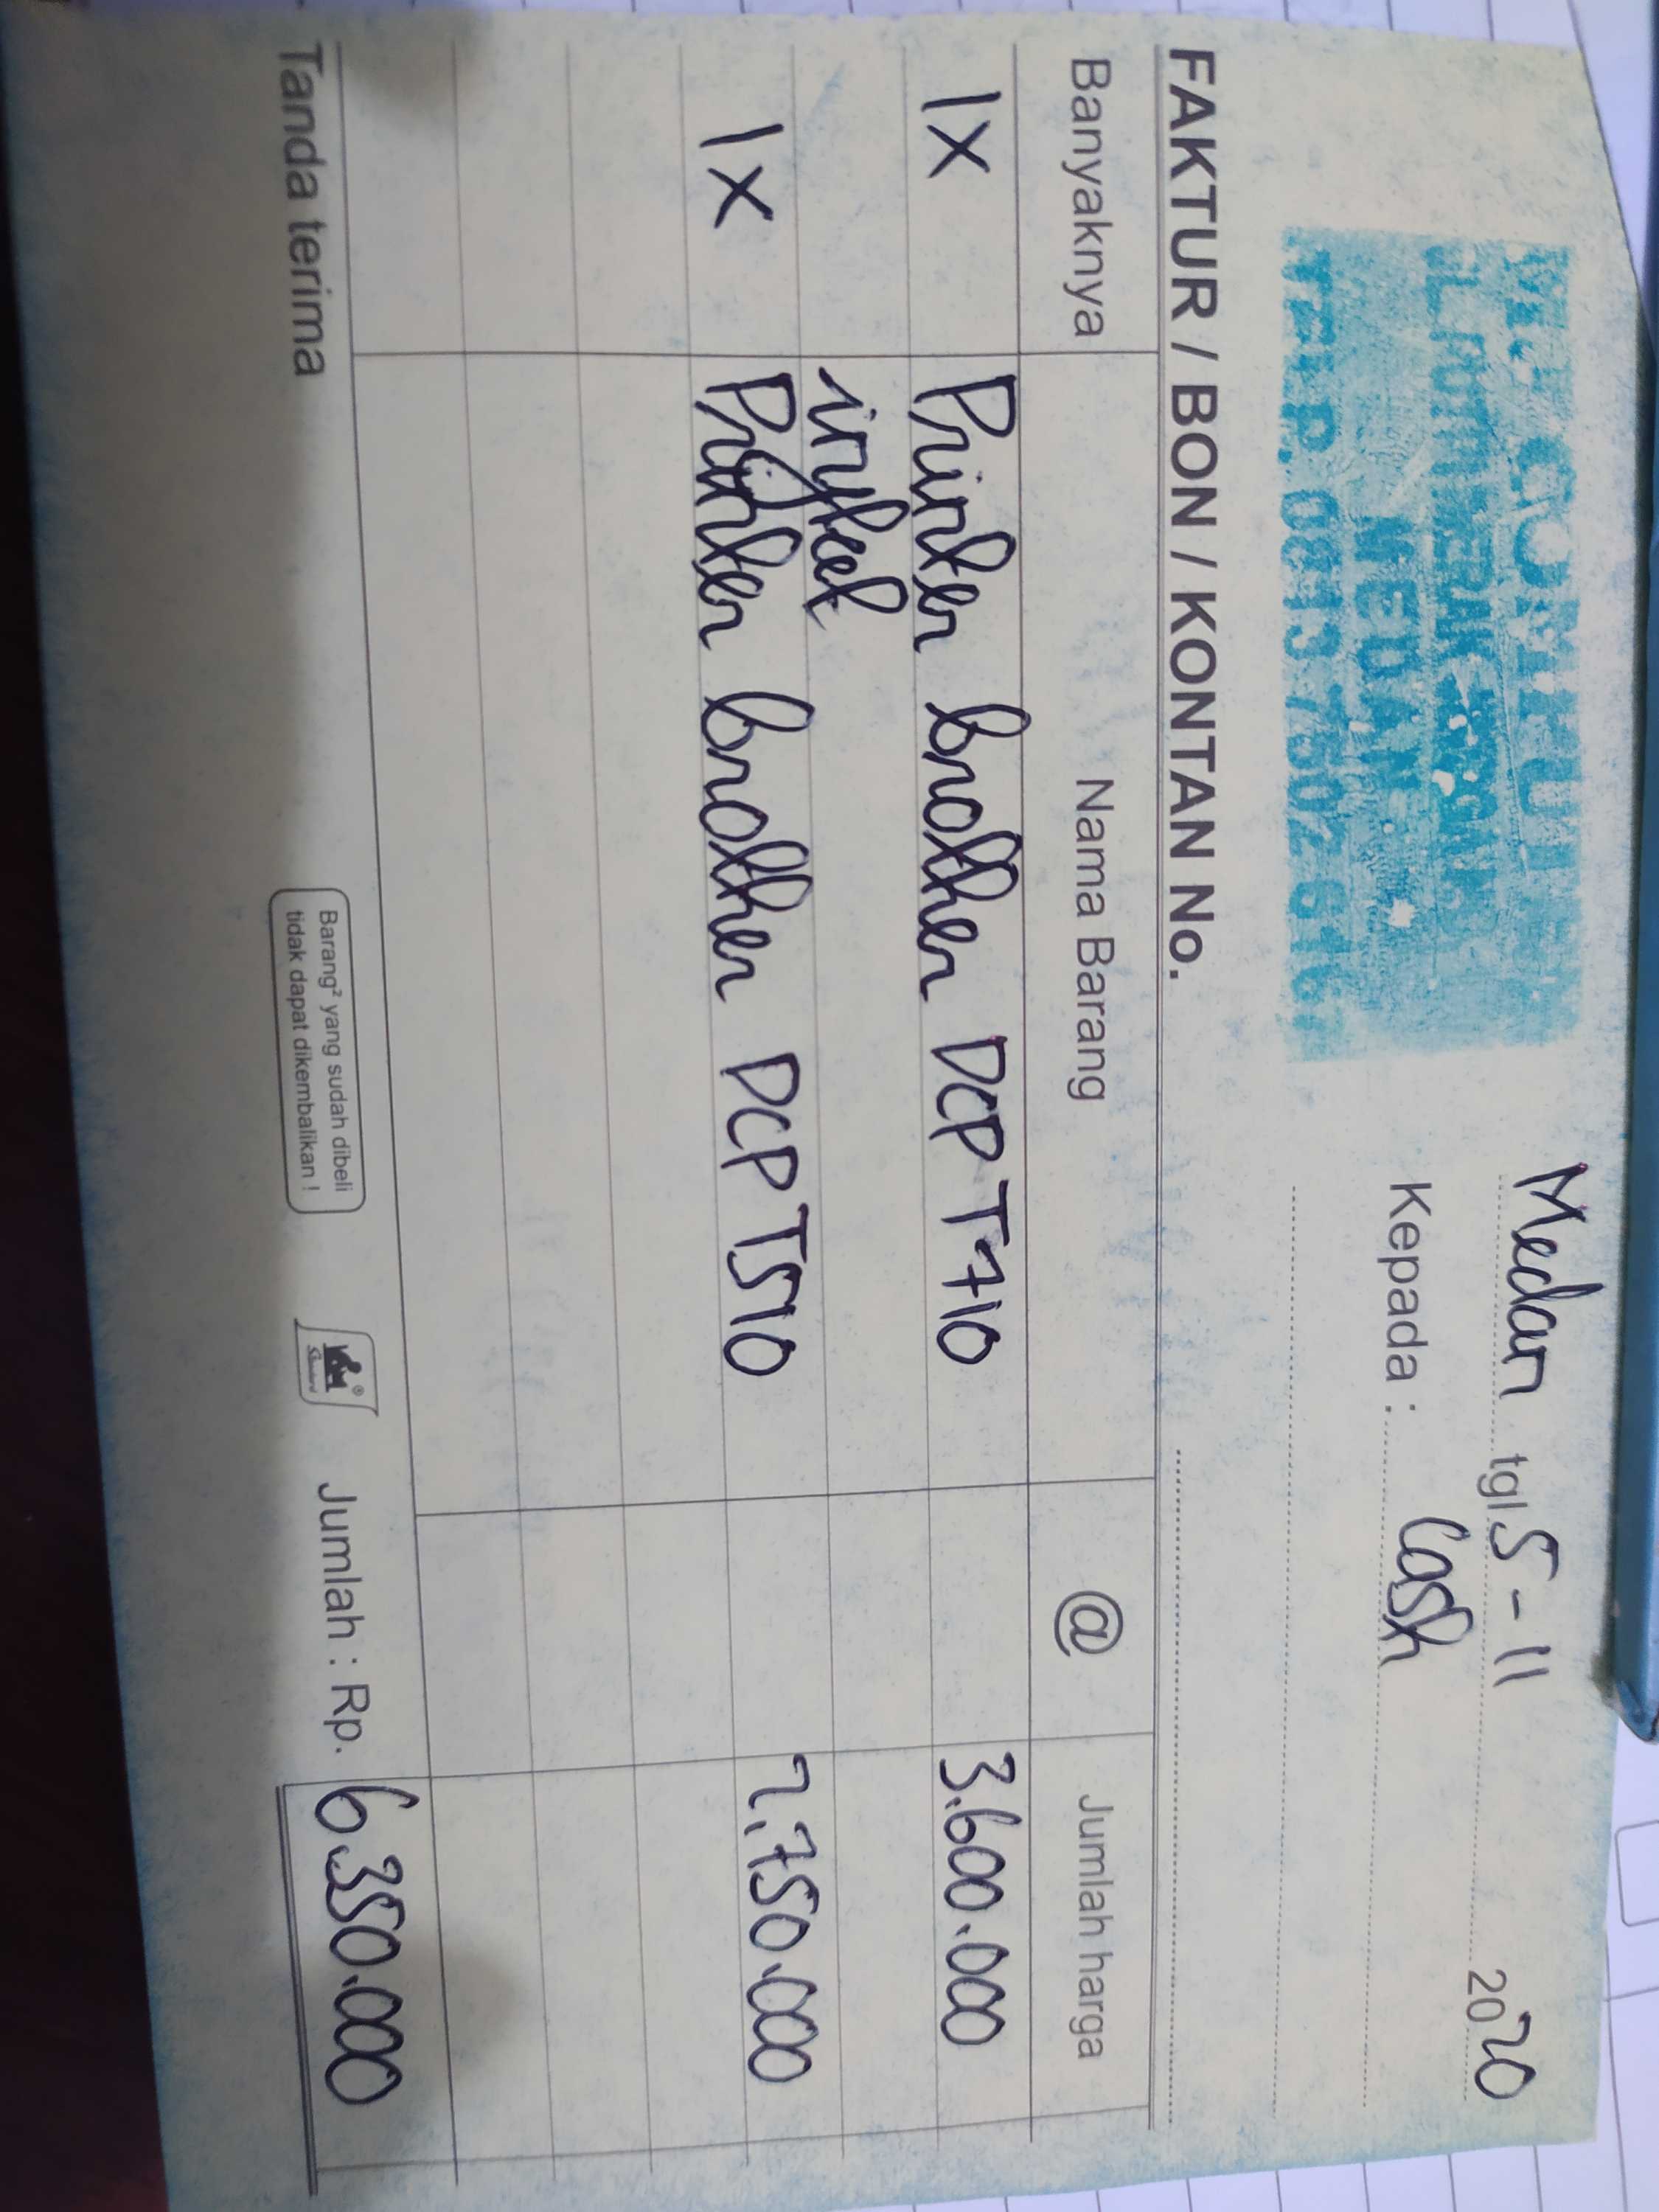 Medan tgl 5-11 2020
COMPUTER
MEDAN
TELP. 0813 7502 616
Kepada : Cash
FAKTUR / BON / KONTAN No.
Banyaknya Nama Barang @ Jumlah harga
1x Printer brother DCP T710 3.600.000
inyket
1x Printer brother DCP T510 2.750.000
Tanda terima
Barang² yang sudah dibeli
tidak dapat dikembalikan !
Jumlah : Rp. 6.350.000